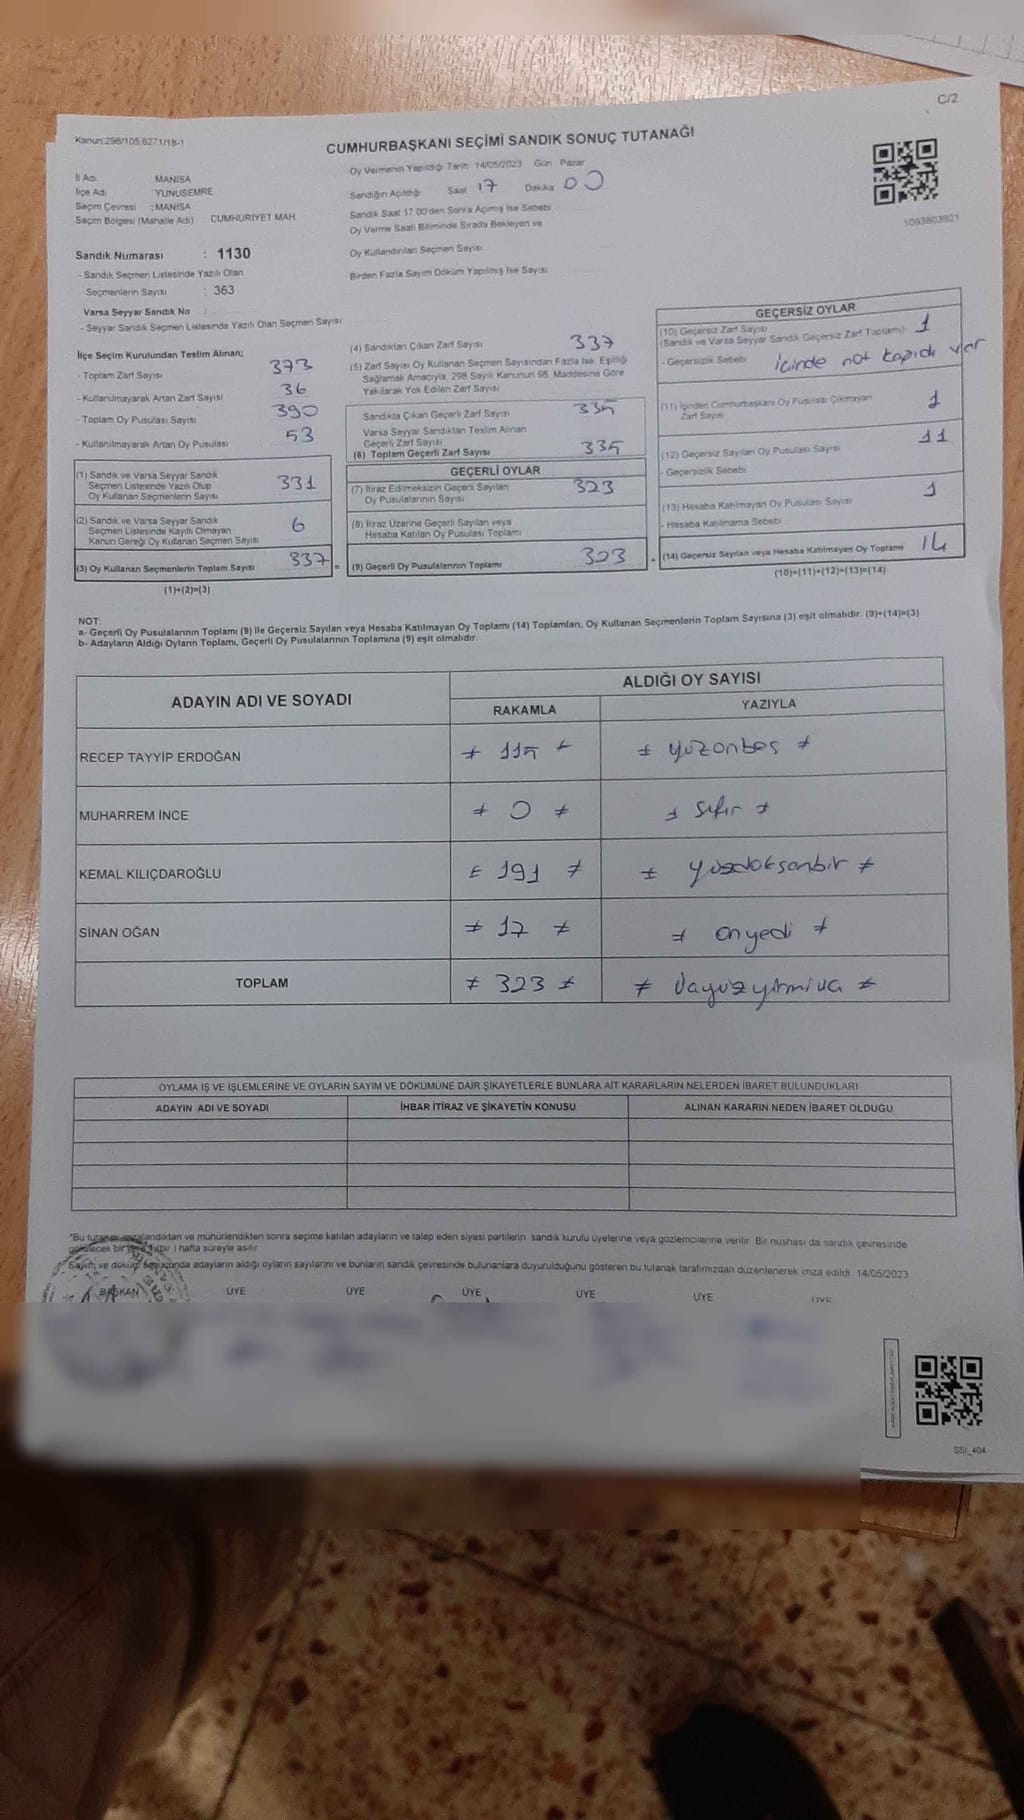 C/2
Kanun:298/105,6271/18-1
CUMHURBAŞKANI SEÇİMİ SANDIK SONUÇ TUTANAĞI
İl Adı MANİSA
İlçe Adı YUNUSEMRE
Seçim Çevresi : MANİSA
Seçim Bölgesi (Mahalle Adı) CUMHURİYET MAH
Sandık Numarası : 1130
- Sandık Seçmen Listesinde Yazılı Olan
Seçmenlerin Sayısı : 363
Varsa Seyyar Sandık No
- Seyyar Sandık Seçmen Listesinde Yazılı Olan Seçmen Sayısı
Oy Vermenin Yapıldığı Tarih 14/05/2023 Gün Pazar
Sandığın Açıldığı Saat 17 Dakika 00
Sandık Saat 17.00'den Sonra Açımış İse Sebebi
Oy Verme Saati Bitiminde Sırada Bekleyen ve
Oy Kullandırılan Seçmen Sayısı
Birden Fazla Sayım Döküm Yapılmış İse Sayısı
1093803921
İlçe Seçim Kurulundan Teslim Alınan;
- Toplam Zarf Sayısı 373
- Kullanılmayarak Artan Zarf Sayısı 36
- Toplam Oy Pusulası Sayısı 390
- Kullanılmayarak Artan Oy Pusulası 53
(1) Sandık ve Varsa Seyyar Sandık
Seçmen Listesinde Yazılı Olup
Oy Kullanan Seçmenlerin Sayısı 331
(2) Sandık ve Varsa Seyyar Sandık
Seçmen Listesinde Kayıtlı Olmayan
Kanun Gereği Oy Kullanan Seçmen Sayısı 6
(3) Oy Kullanan Seçmenlerin Toplam Sayısı 337 =
(1)+(2)=(3)
(4) Sandıktan Çıkan Zarf Sayısı 337
(5) Zarf Sayısı Oy Kullanan Seçmen Sayısından Fazla İse, Eşitliği
Sağlamak Amacıyla, 298 Sayılı Kanunun 98. Maddesine Göre
Yakılarak Yok Edilen Zarf Sayısı
Sandıkta Çıkan Geçerli Zarf Sayısı 335
Varsa Seyyar Sandıktan Teslim Alınan
Geçerli Zarf Sayısı
(6) Toplam Geçerli Zarf Sayısı 335
GEÇERLİ OYLAR
(7) İtiraz Edilmeksizin Geçerli Sayılan
Oy Pusulalarının Sayısı 323
(8) İtiraz Üzerine Geçerli Sayılan veya
Hesaba Katılan Oy Pusulası Toplamı
(9) Geçerli Oy Pusulalarının Toplamı 323 +
GEÇERSİZ OYLAR
(10) Geçersiz Zarf Sayısı
(Sandık ve Varsa Seyyar Sandık Geçersiz Zarf Toplamı) 1
- Geçersizlik Sebebi içinde not kapıdı var
(11) İçinden Cumhurbaşkanı Oy Pusulası Çıkmayan
Zarf Sayısı 1
(12) Geçersiz Sayılan Oy Pusulası Sayısı 11
- Geçersizlik Sebebi
(13) Hesaba Katılmayan Oy Pusulası Sayısı 1
- Hesaba Katılmama Sebebi
(14) Geçersiz Sayılan veya Hesaba Katılmayan Oy Toplamı 14
(10)+(11)+(12)+(13)=(14)
NOT:
a- Geçerli Oy Pusulalarının Toplamı (9) ile Geçersiz Sayılan veya Hesaba Katılmayan Oy Toplamı (14) Toplamları, Oy Kullanan Seçmenlerin Toplam Sayısına (3) eşit olmalıdır. (9)+(14)=(3)
b- Adayların Aldığı Oyların Toplamı, Geçerli Oy Pusulalarının Toplamına (9) eşit olmalıdır.
ADAYIN ADI VE SOYADI ALDIĞI OY SAYISI
RAKAMLA YAZIYLA
RECEP TAYYİP ERDOĞAN ≠ 115 ≠ ≠ yüzonbeş ≠
MUHARREM İNCE ≠ 0 ≠ ≠ Sıfır ≠
KEMAL KILIÇDAROĞLU ≠ 191 ≠ ≠ yüzdoksanbir ≠
SİNAN OĞAN ≠ 17 ≠ ≠ onyedi ≠
TOPLAM ≠ 323 ≠ ≠ üçyüzyirmiüç ≠
OYLAMA İŞ VE İŞLEMLERİNE VE OYLARIN SAYIM VE DÖKÜMÜNE DAİR ŞİKAYETLERLE BUNLARA AİT KARARLARIN NELERDEN İBARET BULUNDUKLARI
ADAYIN ADI VE SOYADI İHBAR İTİRAZ VE ŞİKAYETİN KONUSU ALINAN KARARIN NEDEN İBARET OLDUĞU
*Bu tutanak imzalandıktan ve mühürlendikten sonra seçime katılan adayların ve talep eden siyasi partilerin sandık kurulu üyelerine veya gözlemcilerine verilir. Bir nüshası da sandık çevresinde
görülecek bir yere 1 (bir) hafta süreyle asılır.
Sayım ve döküm sonucunda adayların aldığı oyların sayılarını ve bunların sandık çevresinde bulunanlara duyurulduğunu gösteren bu tutanak tarafımızdan düzenlenerek imza edildi. 14/05/2023
BAŞKAN ÜYE ÜYE ÜYE ÜYE ÜYE ÜYE
SSI_404